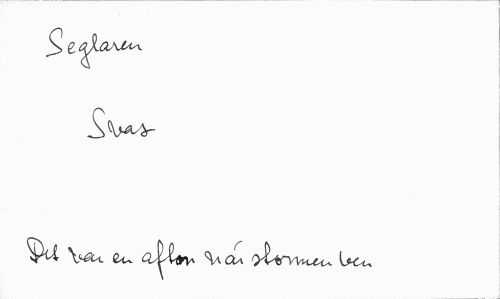 Seglaren
Svas
Det var en afton när stormen ven